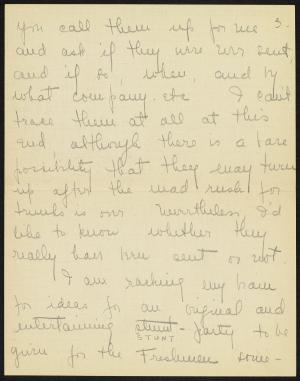 you call them up for me 3.
and ask if they were ever sent,
and if so, when, and by
what company. etc I can't
trace them at all at this
end, although there is a bare
possibility that they may turn
up after the mad rush for
trunks is over Nevertheless, I'd
like to know whether they
really have been sent or not.
I am racking my brain
for ideas for an original and
entertaining stunt - party to be
STUNT
given for the Freshmen some-